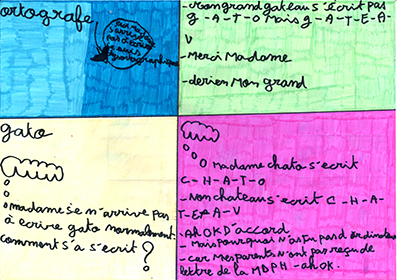 ortografe
moi madame
n'arrive
pas à écrire
je suis
dysorthographique
- Mon grand gateau s'écrit pas
g - A - T - O Mais g - A - T - E - A -
V
- Merci Madame
- derien Mon grand
gato
madame je n'arrive pas
à écrire gato normalement.
comment s'a s'écrit ?
madame chato s'écrit
C - H - A - T - O
- Non chateau s'écrit C - H - A -
T - E - A - V
- Ah OK D'accord
- Mais pourquoi n'as tu pas d'ordinateur
- car Mes parents n'ont pas reçu de
lettre de la MDPH - ah OK.